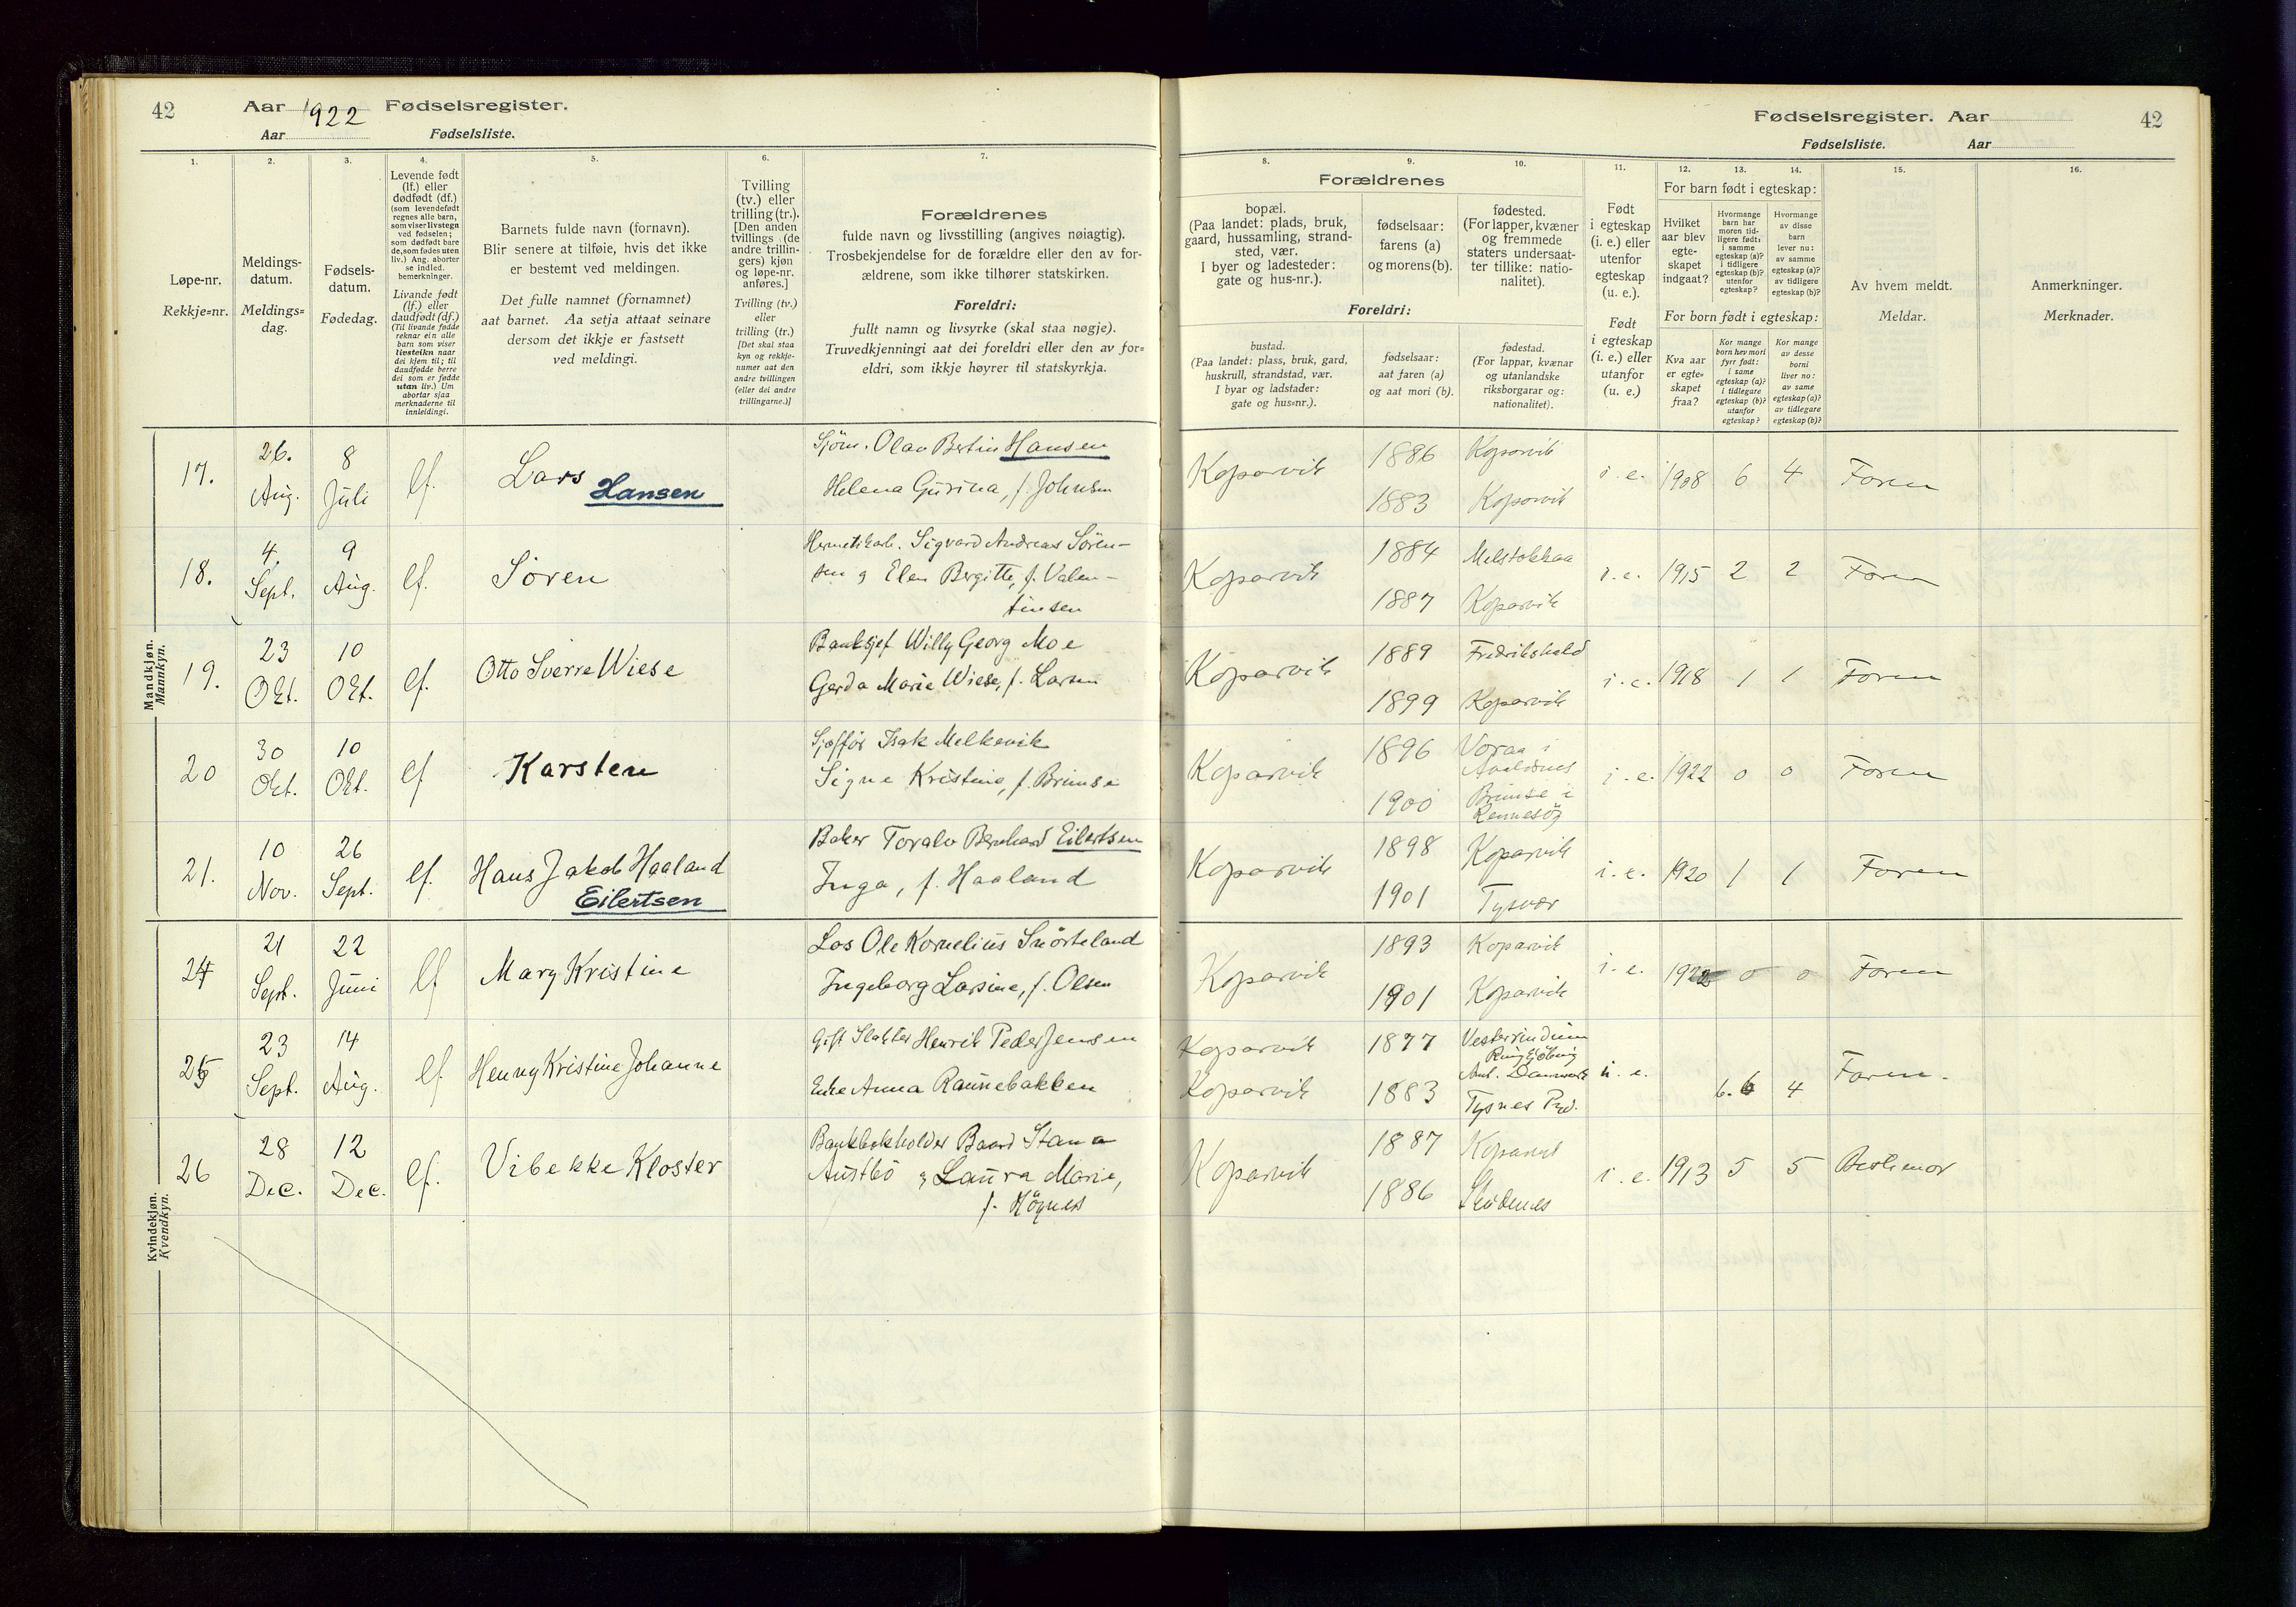 42 Aar 1922 Fødselsregister.
Aar Fødselsliste.
Fødselsregister. Aar 42
Fødselsliste. Aar
1.
Løpe-nr.
Rekkje=nr.
2.
Meldings-
datum.
Meldings=
dag.
3.
Fødsels-
datum.
Fødedag.
4.
Levende født
(lf.) eller
dødfødt (df.)
(som levendefødt
regnes alle barn,
som viser livstegn
ved fødselen;
som dødfødt bare
de, som fødes uten
liv.) Ang. aborter
se indled.
bemerkninger.
Livande født
(lf.) eller
daudfødt (df.)
(Til livande fødde
reknar ein alle
barn som viser
livsteikn naar
dei kjem til; til
daudfødde berre
dei som er fødde
utan liv.) Um
abortar sjaa
merknaderne til
innleidingi.
5.
Barnets fulde navn (fornavn).
Blir senere at tilføie, hvis det ikke
er bestemt ved meldingen.
Det fulle namnet (fornamnet)
aat barnet. Aa setja attaat seinare
dersom det ikkje er fastsett
ved meldingi.
6.
Tvilling
(tv.) eller
trilling (tr.).
[Den anden
tvillings (de
andre trillin-
gers) kjøn
og løpe-nr.
anføres.]
Tvilling (tv.)
eller
trilling (tr.)
[Det skal staa
kyn og rekkje-
numer aat den
andre tvillingen
(eller dei andre
trillingarne.)]
7.
Forældrenes
fulde navn og livsstilling (angives nøiagtig).
Trosbekjendelse for de forældre eller den av for-
ældrene, som ikke tilhører statskirken.
Foreldri:
fullt namn og livsyrke (skal staa nøgje).
Truvedkjenningi aat dei foreldri eller den av for=
eldri, som ikkje høyrer til statskyrkja.
Forældrenes
8.
bopæl.
(Paa landet: plads, bruk,
gaard, hussamling, strand-
sted, vær.
I byer og ladesteder:
gate og hus-nr.).
9.
fødselsaar:
farens (a)
og morens (b).
10.
fødested.
(For lapper, kvæner
og fremmede
staters undersaat-
ter tillike: natio-
nalitet).
Foreldri:
bustad.
(Paa landet: plass, bruk, gard,
huskrull, strandstad, vær.
I byar og ladstader:
gate og hus=nr.).
fødselsaar:
aat faren (a)
og aat mori (b).
fødestad.
(For lappar, kvænar
og utanlandske
riksborgarar og:
nationalitet).
11.
Født
i egteskap
(i. e.) eller
utenfor
egteskap
(u. e.).
Født
i egteskap
(i. e.) eller
utanfor
(u. e.)
12. 13. 14.
For barn født i egteskap:
Hvilket
aar blev
egte-
skapet
indgaat?
Hvormange
barn har
moren tid-
ligere født:
i samme
egteskap (a)?
i tidligere
egteskap (b)?
utenfor
egteskap?
Hvormange
av disse
barn
lever nu:
av samme
egteskap (a)?
av tidligere
egteskap (b)?
For born født i egteskap:
Kva aar
er egte=
skapet
fraa?
Kor mange
born hev mori
fyrr født:
i same
egteskap (a)?
i tidlegare
egteskap (b)?
utanfor
egteskap?
Kor mange
av desse
borni
liver no:
av same
egteskap (a)?
av tidlegare
egteskap (b)?
15.
Av hvem meldt.
Meldar.
16.
Anmerkninger.
Merknader.
Mandkjøn.
Mannkyn.
17. 26. Aug. 8 Juli lf. Lars Hansen
Sjøm. Olav Bertin Hansen
Helena Gurina, f. Johnsen
Koparvik 1886 Koparvik
1883 Koparvik
i. e. 1908 6 4 Faren
18. 4. Sept. 9 Aug. lf. Sören
Hermetikarb. Sigvard Andreas Sören-
sen og Elen Bergitte, f. Valen-
tinsen
Koparvik 1884 Melstokkaa
1887 Koparvik
i. e. 1915 2 2 Faren
19. 23 Okt. 10 Okt. lf. Otto Sverre Wiese
Banksjef Willy Georg Moe
Gerda Marie Wiese, f. Larsen
Koparvik 1889 Fredrikshald
1899 Koparvik
i. e. 1918 1 1 Faren
20 30 Okt. 10 Okt. lf Karsten
Sjøffør Isak Melkevik
Signe Kristine, f. Brimse
Koparvik 1896 Voraa i
Avaldsnes
1900 Brimse i
Rennesöy
i. e. 1922 0 0 Faren
21. 10 Nov. 26 Sept. lf. Hans Jakob Haaland
Eilertsen
Baker Toralv Bernhard Eilertsen
Inga, f. Haaland
Koparvik 1898 Koparvik
1901 Tysvær
i. e. 1920 1 1 Faren
Kvindekjøn.
Kvendkyn.
24 21 Sept. 22 Juni lf Mary Kristine
Los Ole Kornelius Snörteland
Ingeborg Lasine, f. Olsen
Koparvik 1893 Koparvik
1901 Koparvik
i. e. 1922 0 0 Faren
25 23 Sept. 14 Aug. lf. Henny Kristine Johanne
Gift Slakter Henrik Peder Jensen
Enke Anna Raunebakken
Koparvik 1877 Vestervindum
Ringkjöbing
Amt. Danmark
Koparvik 1883 Tysnes Pgd.
u. e. 6. 6 4 Faren.
26 28 Dec. 12 Dec. lf. Vibekke Kloster
Bankbokholder Baard Stana
Austbö og Laura Marie,
f. Högnes
Koparvik 1887 Koparvik
1886 Skudenes
i. e. 1913 5 5 Bestemor